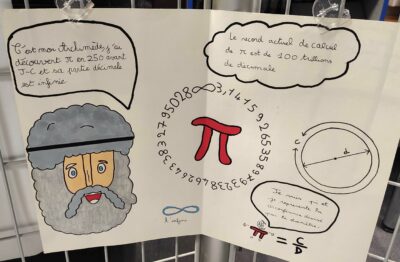 C'est moi Archimède, j'ai
découvert π en 250 avant
J-C et sa partie décimale
est infinie
Le record actuel de calcul
de π est de 100 trillions
de décimale
3,141592653589793238462643383279502884
π
C
d
Je suis π et
je représente la
circonférence divisé
par le diamètre.
π = C/D
∞
l'infini